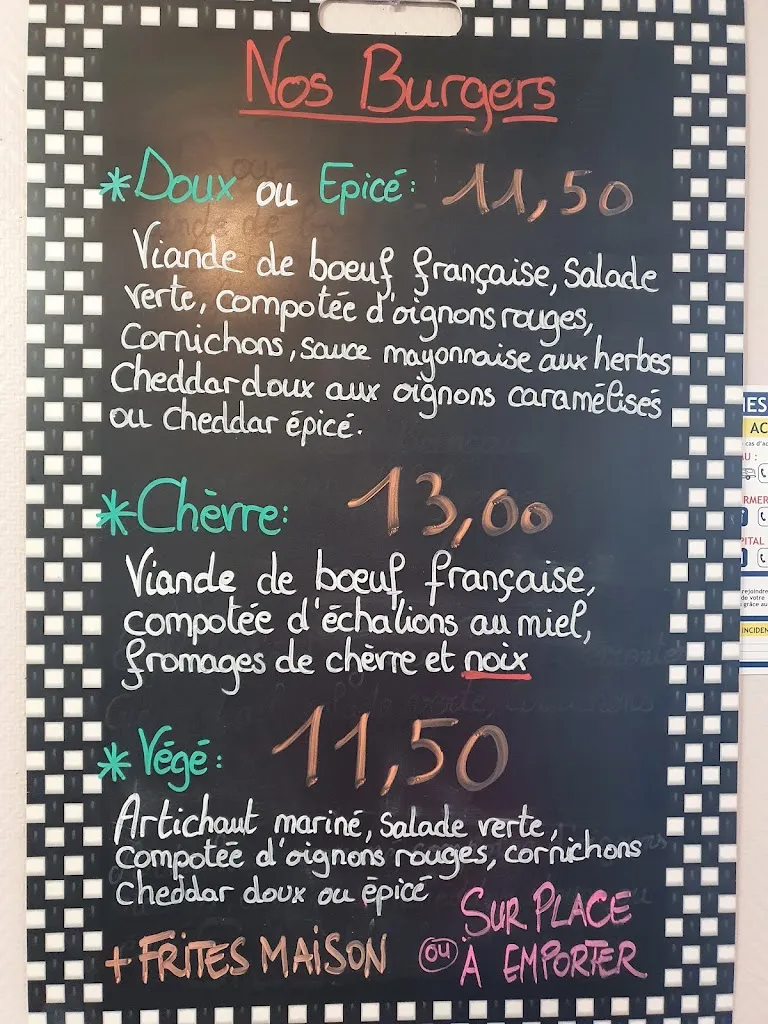 Nos Burgers
*Doux ou Epicé: 11,50
Viande de boeuf française, Salade
verte, compotée d'oignons rouges,
Cornichons, sauce mayonnaise aux herbes
Cheddar doux aux oignons caramélisés
ou cheddar épicé.
*Chèvre: 13,00
Viande de boeuf française,
compotée d'échalions au miel,
fromages de chèvre et noix
*Végé: 11,50
Artichaut mariné, Salade verte,
Compotée d'oignons rouges, cornichons
Cheddar doux ou épicé
+ FRITES MAISON
SUR PLACE
ou À EMPORTER